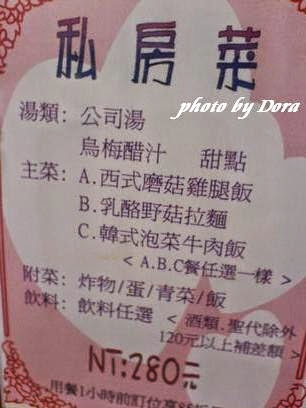 私房菜
photo by Dora
湯類: 公司湯
烏梅醋汁 甜點
主菜: A.西式磨菇雞腿飯
B.乳酪野菇拉麵
C.韓式泡菜牛肉飯
< A.B.C餐任選一樣 >
附菜: 炸物/蛋/青菜/飯
飲料: 飲料任選 < 酒類.聖代除外
120元以上補差額 >
NT:280元
用餐1小時前訂位享